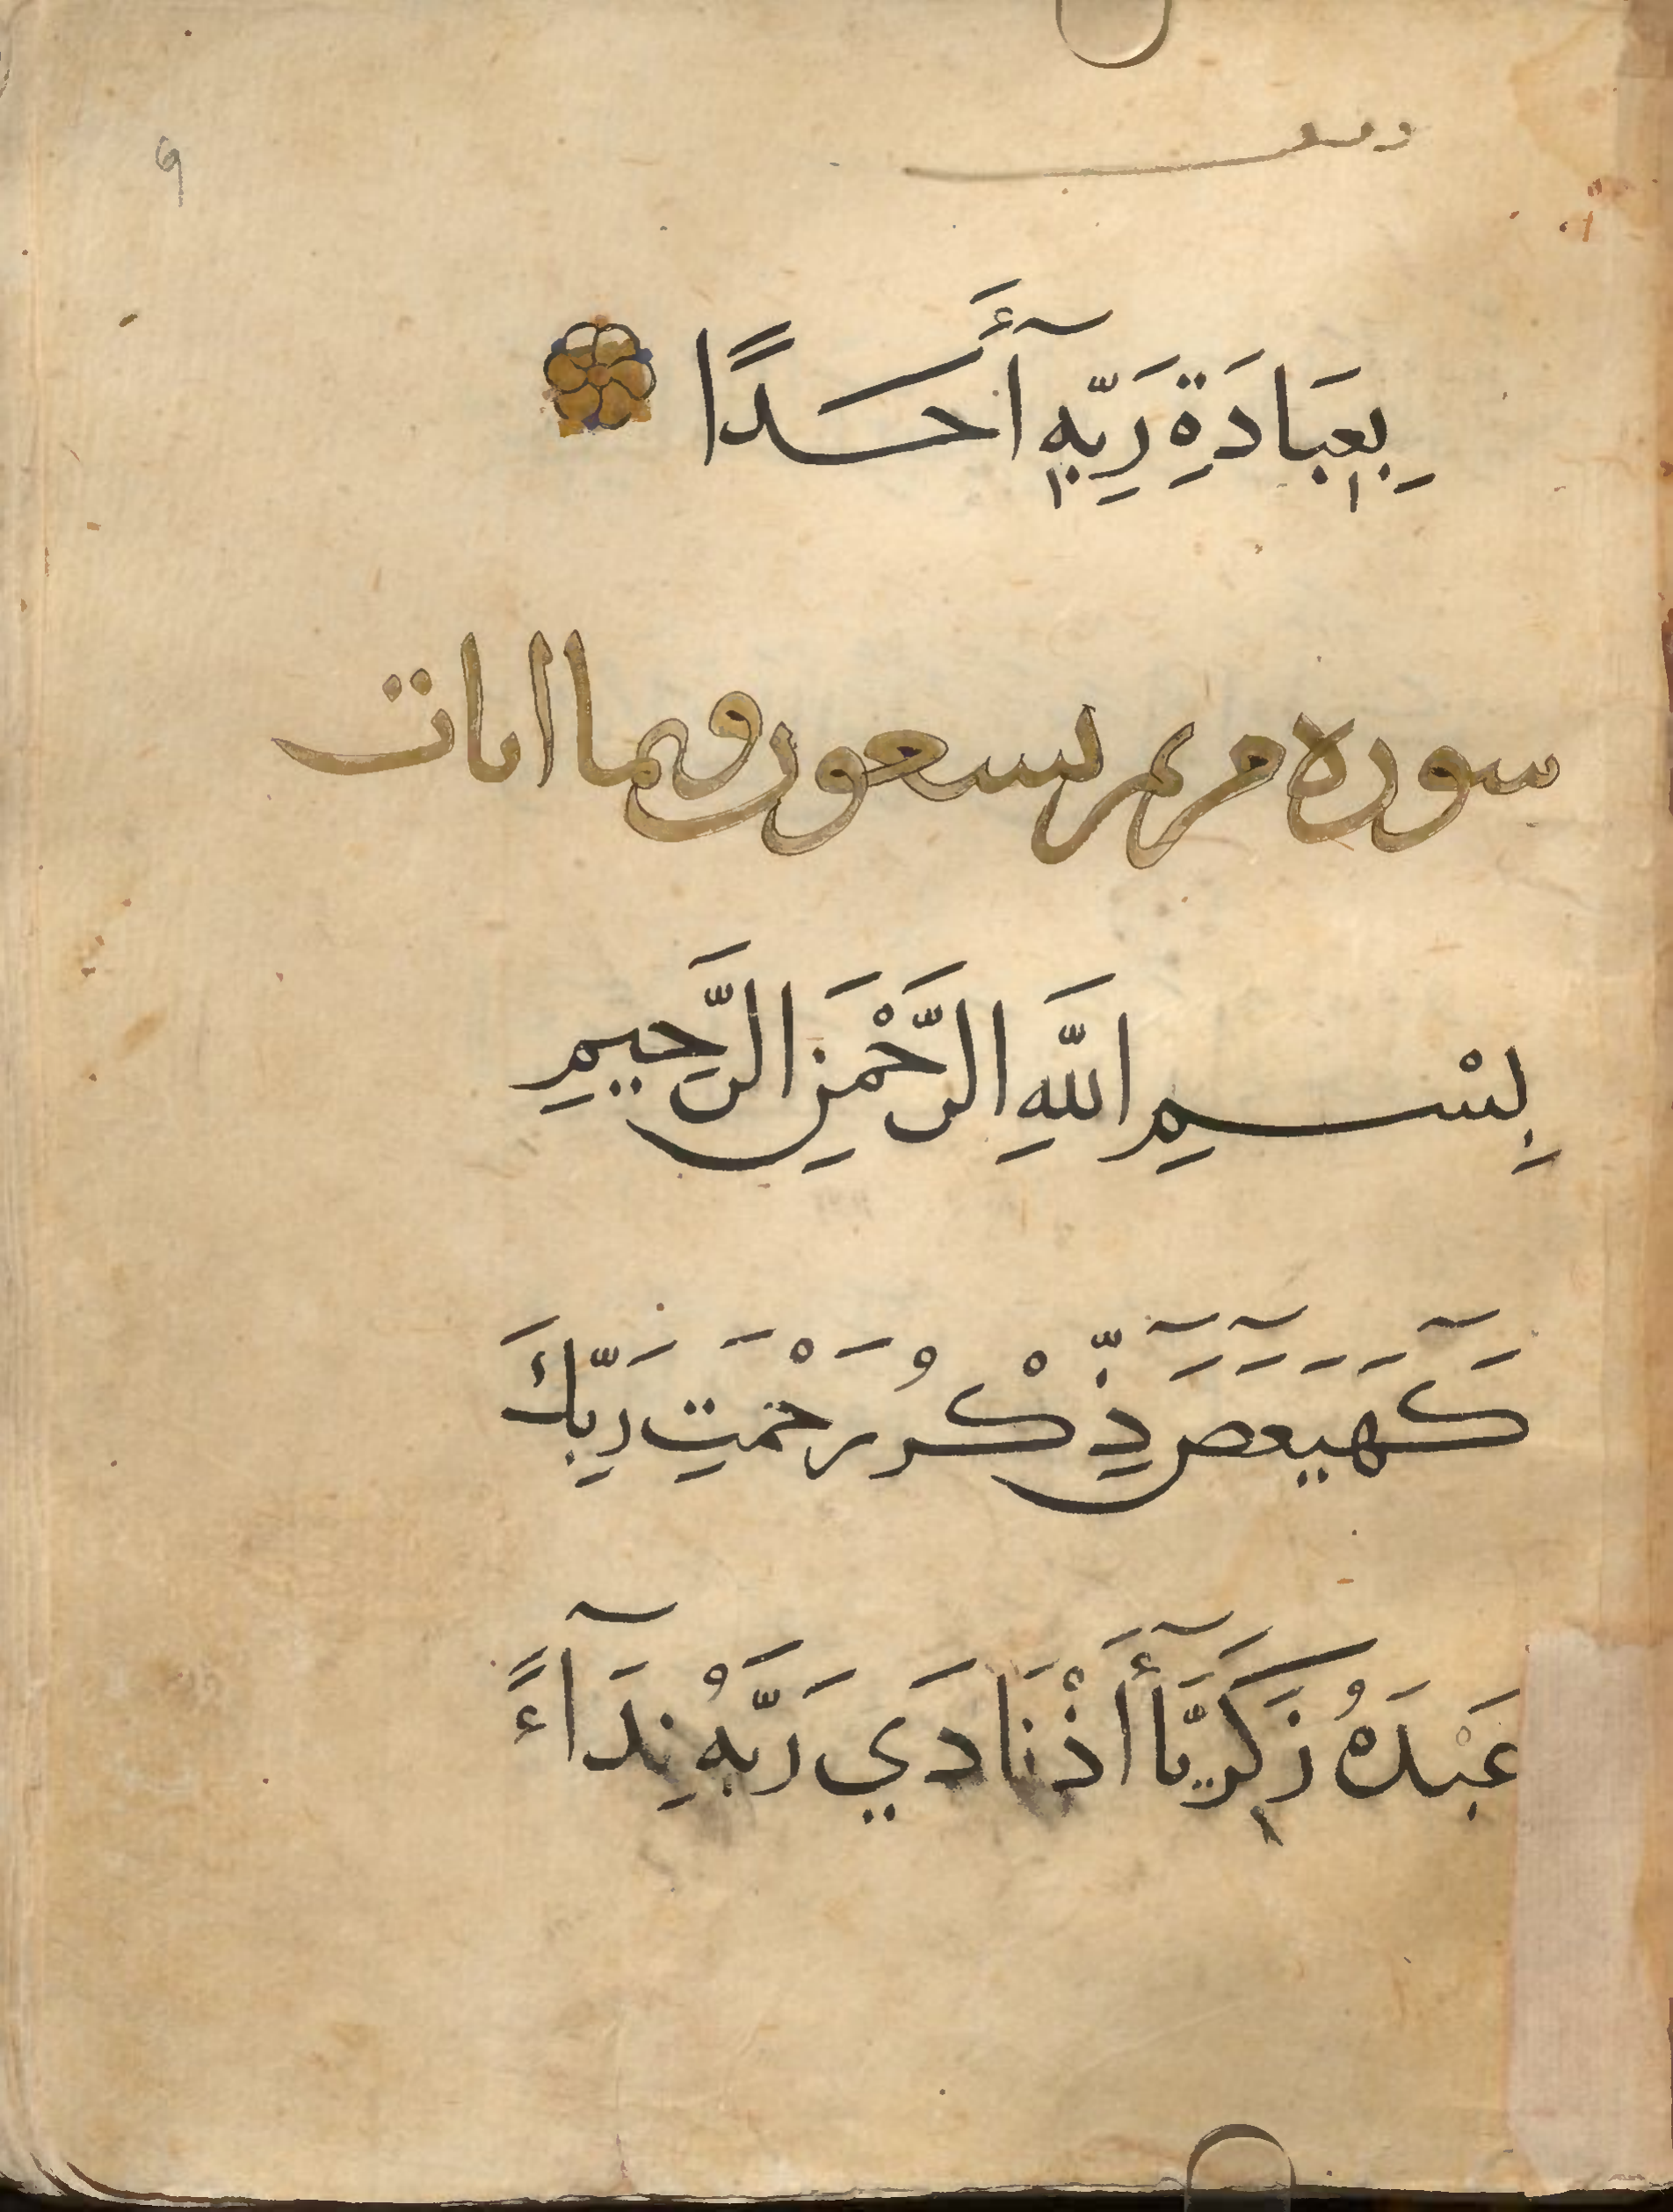 9
بِعِبَادَةِ رَبِّهِ آأَحَدًا
سوره مريم تسعون وثما اىات
بِسْمِ اللَّهِ الرَّحْمَنِ الرَّحِيمِ
كَهَيَعَصَ ذِّكْرُ رَحْمَتِ رَبِّكَ
عَبْدَهُ زَكَرِيَّآ أَذْنَادَي رَبَّهُ نِدَآءً